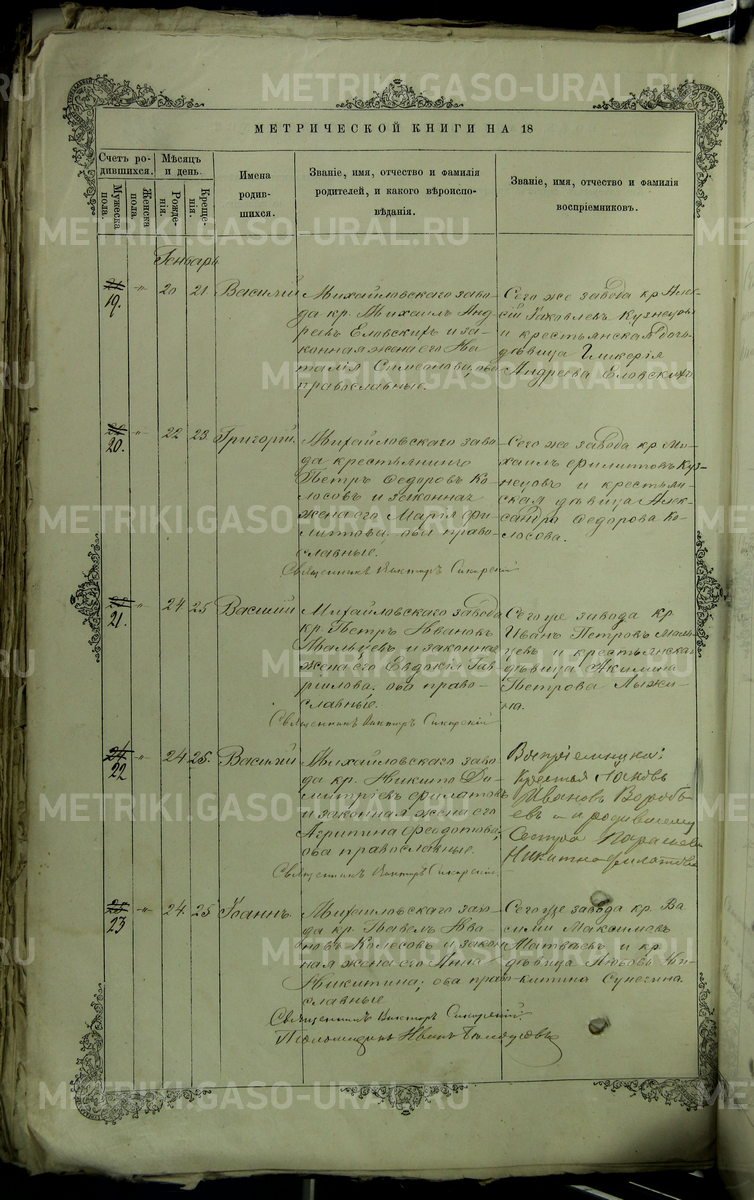 METRIKI.GASO-URAL.RU
МЕТРИЧЕСКОЙ КНИГИ НА 18
Счетъ ро-
дившихся.
Мужеска
пола.
Женска
пола.
Мѣсяцъ
и день.
Рожде-
нія.
Креще-
нія.
Имена
родив-
шихся.
Званіе, имя, отчество и фамилія
родителей, и какого вѣроиспо-
вѣданія.
Званіе, имя, отчество и фамилія
воспріемниковъ.
Генварь
19.
20
21
Василій
Михайловскаго заво-
да кр. Михаилъ Анд-
реевъ Еловскихъ и за-
конная жена его На-
талія Симеонова, оба
православные.
Сего же завода кр. Алек-
сій Іаковлевъ Кузнецовъ
и крестьянская дочь
дѣвица Гликерія
Андреева Еловскихъ
20.
22
23
Григорій
Михайловскаго заво-
да крестьянинъ
Петръ Ѳедоровъ Ко-
лосовъ и законная
жена его Марія Фи-
липпова, оба право-
славные.
Священникъ Викторъ Сикорскій
Сего же завода кр. Ми-
хаилъ Филипповъ Куз-
нецовъ и крестьян-
ская дѣвица Алек-
сандра Ѳедорова Ко-
лосова.
21.
24
25
Василій
Михайловскаго завода
кр. Петръ Ивановъ
Мальцевъ и законная
жена его Евдокія Гав-
рилова, оба право-
славные.
Священникъ Викторъ Сикорскій
Сего же завода кр.
Иванъ Петровъ Маль-
цевъ и крестьянская
дѣвица Акилина
Петрова Лыжи-
на.
22
24
25
Василій
Михайловскаго заво-
да кр. Никита Ди-
митріевъ Филатовъ
и законная жена его
Агрипина Ѳеодотова,
оба православные.
Священникъ Викторъ Сикорскій
Иванов Воробь-
евъ и родившему
Сестра Параскева
Никитина Филатова
23
24
25
Іоаннъ
Михайловскаго заво-
да кр. Павелъ Ива-
новъ Колосовъ и закон-
ная жена его Анна
Никитина, оба право-
славные
Священникъ Викторъ Сикорскій.
Псаломщикъ Иванъ
Сего же завода кр. Ва-
силій Максимовъ
Матвѣевъ и кр.
дѣвица Любовь Ни-
китина